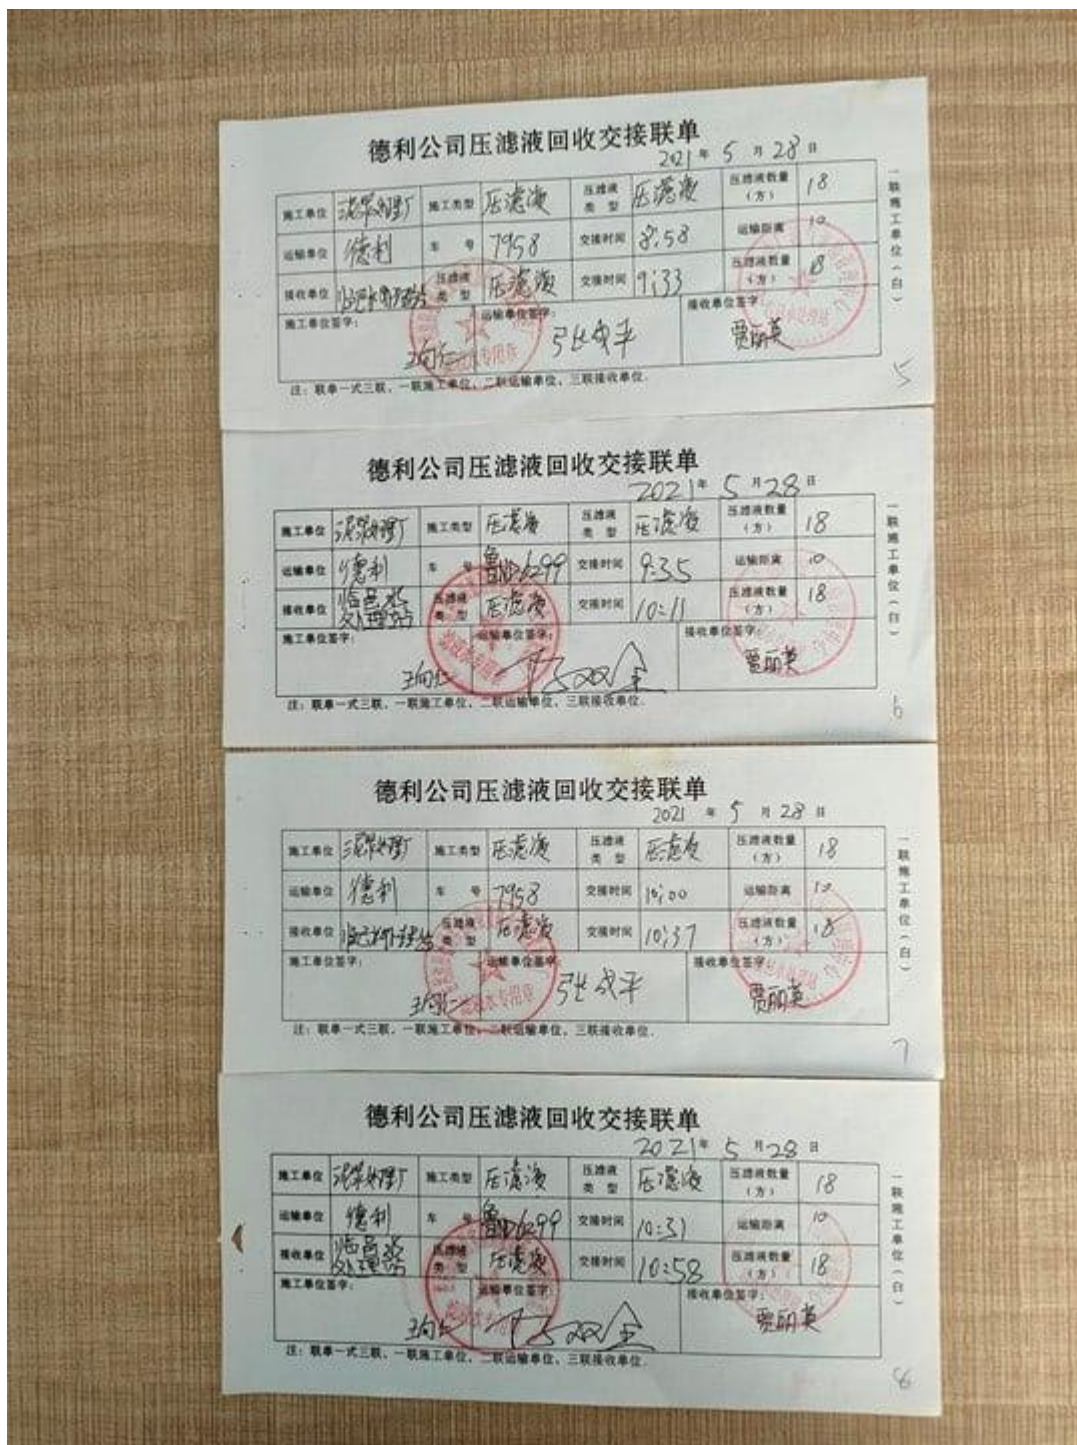 德利公司压滤液回收交接联单
2021年 5月28日
施工单位 泥浆处理厂 施工类型 压滤液 压滤液类型 压滤液 压滤液数量（方） 18
运输单位 德利 车号 7958 交接时间 8:58 运输距离 10
接收单位 压滤液类型 压滤液 交接时间 9:33 压滤液数量（方） 18
施工单位签字: 运输单位签字: 张成平 接收单位签字: 贾丽英
专用章
注：联单一式三联，一联施工单位，二联运输单位，三联接收单位.
一联施工单位（白）
5
德利公司压滤液回收交接联单
2021年 5月28日
施工单位 泥浆处理厂 施工类型 压滤液 压滤液类型 压滤液 压滤液数量（方） 18
运输单位 德利 车号 鲁ND6299 交接时间 9:35 运输距离 10
接收单位 临邑水处理站 压滤液类型 压滤液 交接时间 10:11 压滤液数量（方） 18
施工单位签字: 运输单位签字: 接收单位签字: 贾丽英
注：联单一式三联，一联施工单位，二联运输单位，三联接收单位.
一联施工单位（白）
6
德利公司压滤液回收交接联单
2021年 5月28日
施工单位 泥浆处理厂 施工类型 压滤液 压滤液类型 压滤液 压滤液数量（方） 18
运输单位 德利 车号 7958 交接时间 10:00 运输距离 10
接收单位 压滤液类型 压滤液 交接时间 10:37 压滤液数量（方） 18
施工单位签字: 运输单位签字: 张成平 接收单位签字: 贾丽英
专用章
注：联单一式三联，一联施工单位，二联运输单位，三联接收单位.
一联施工单位（白）
7
德利公司压滤液回收交接联单
2021年 5月28日
施工单位 泥浆处理厂 施工类型 压滤液 压滤液类型 压滤液 压滤液数量（方） 18
运输单位 德利 车号 鲁ND6299 交接时间 10:31 运输距离 10
接收单位 临邑水处理站 压滤液类型 压滤液 交接时间 10:58 压滤液数量（方） 18
施工单位签字: 运输单位签字: 接收单位签字: 贾丽英
注：联单一式三联，一联施工单位，二联运输单位，三联接收单位.
一联施工单位（白）
8